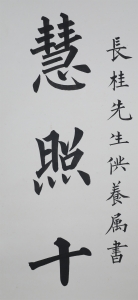 長桂先生供養属書
慧照十